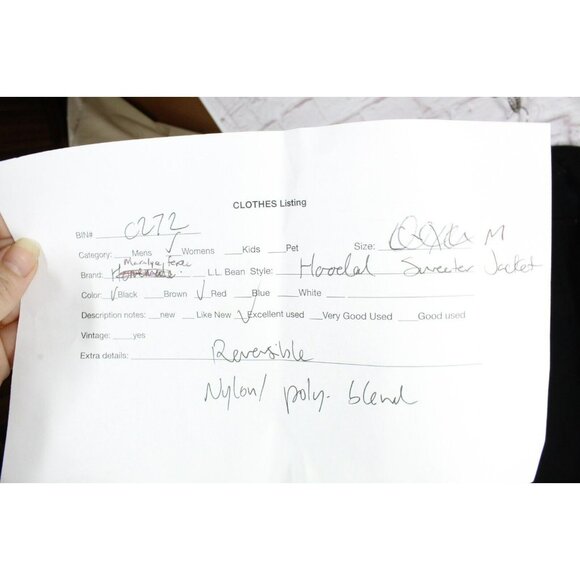 CLOTHES Listing
BIN# C272
Category: ___Mens ✓Womens ___Kids ___Pet Size: M
Brand: ___L.L. Bean Style: Hooded Sweater Jacket
Color: ✓Black ___Brown ✓Red ___Blue ___White ___
Description notes: ___new ___Like New ✓Excellent used ___Very Good Used ___Good used
Vintage: ___yes
Extra details: Reversible
Nylon/ poly. blend